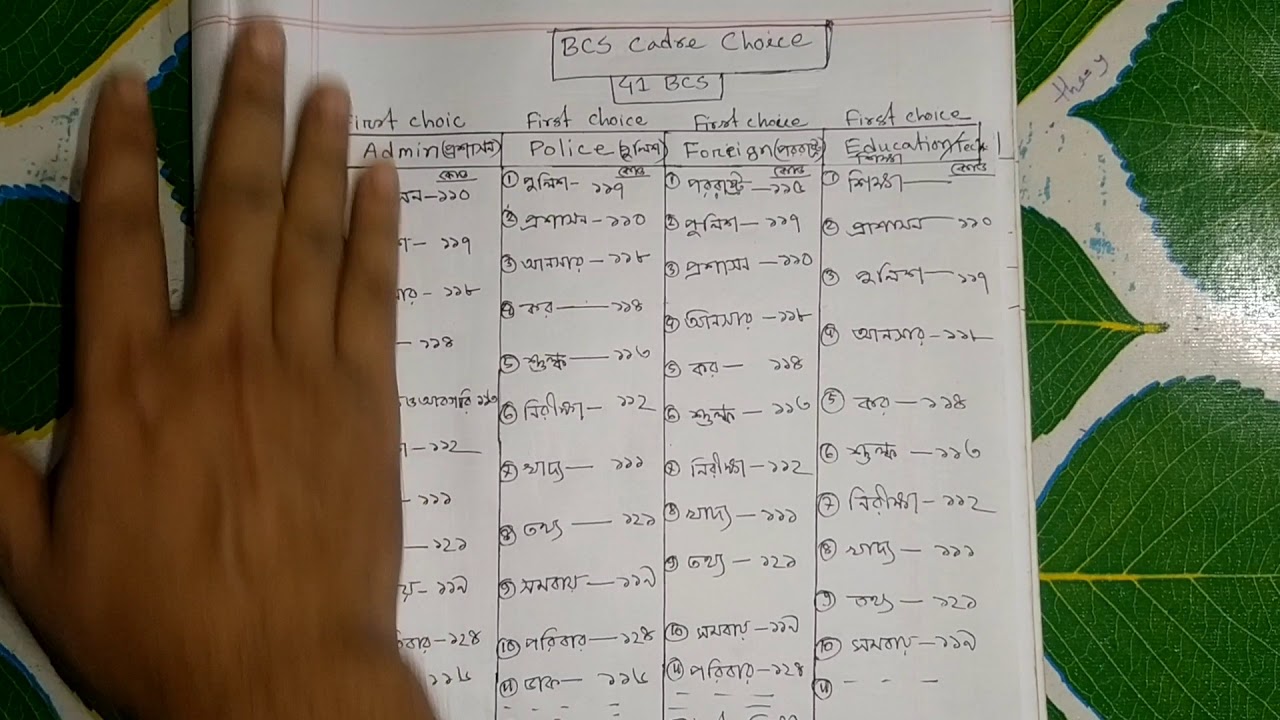 BCS Cadre Choice
41 BCS
First choic
Admin (প্রশাসন)
কোড
১১০
১১৭
১১৮
১১৪
১১৩
১১২
১১১
১২১
১১৯
১২৪
১১৬
First choice
Police (পুলিশ)
কোড
① পুলিশ - ১১৭
② প্রশাসন - ১১০
③ আনসার - ১১৮
④ কর — ১১৪
⑤ শুল্ক — ১১৩
⑥ নিরীক্ষা - ১১২
⑦ খাদ্য — ১১১
⑧ তথ্য — ১২১
⑨ সমবায় — ১১৯
⑩ পরিবার — ১২৪
⑪ ডাক — ১১৬
First choice
Foreign (পররাষ্ট্র)
কোড
① পররাষ্ট্র — ১১৫
② পুলিশ — ১১৭
③ প্রশাসন — ১১০
④ আনসার — ১১৮
⑤ কর — ১১৪
⑥ শুল্ক — ১১৩
⑦ নিরীক্ষা — ১১২
⑧ খাদ্য — ১১১
⑨ তথ্য — ১২১
⑩ সমবায় — ১১৯
⑪ পরিবার — ১২৪
First choice
Education/Tech
শিক্ষা
কোড
① শিক্ষা —
② প্রশাসন — ১১০
③ পুলিশ — ১১৭
④ আনসার — ১১৮
⑤ কর — ১১৪
⑥ শুল্ক — ১১৩
⑦ নিরীক্ষা - ১১২
⑧ খাদ্য — ১১১
⑨ তথ্য — ১২১
⑩ সমবায় — ১১৯
⑪ - - -